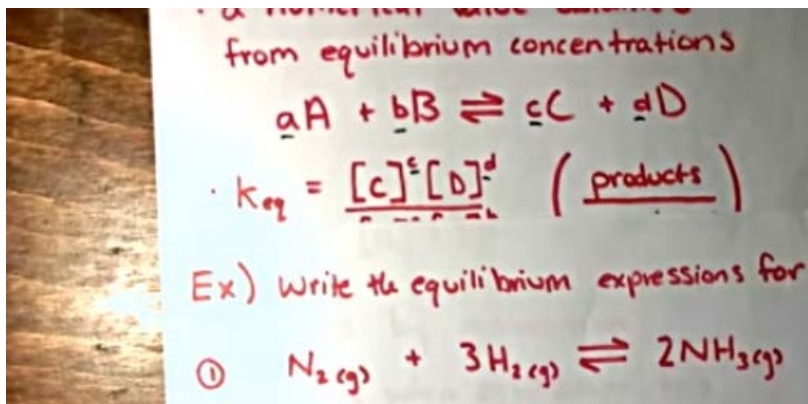 from equilibrium concentrations
aA + bB ⇌ cC + dD
· Keq = [C]^c [D]^d ( products )
Ex) Write the equilibrium expressions for
① N₂(g) + 3H₂(g) ⇌ 2NH₃(g)